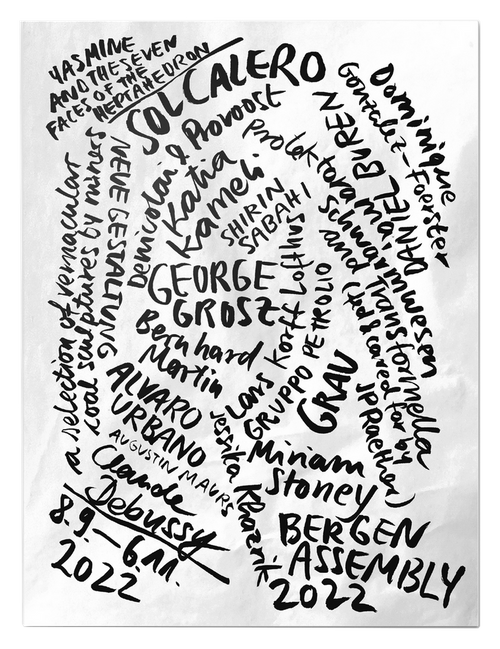 YASMINE
AND THE SEVEN
FACES OF THE
HEPTAHEDRON
SOL CALERO
Dominique
Gonzalez-Foerster
DANIEL BUREN
Denicolai & Provoost
Proletkura
mai
Schwarmwesen
and Transformella
(fed & cared for by
JP Raether)
Katia
Kameli
SHIRIN
SABAHI
NEUE GESTALTUNG
a selection of vernacular
coal sculptures by miners
GEORGE
GROSZ
Lars Korff Lofthus
GRUPPO PETROLIO
Bernhard
Martin
GRAU
ALVARO
URBANO
AUGUSTIN MAURS
Jessika Khazrik
Miriam
Stoney
Claude
Debussy
8.9.–6.11.
2022
BERGEN
ASSEMBLY
2022